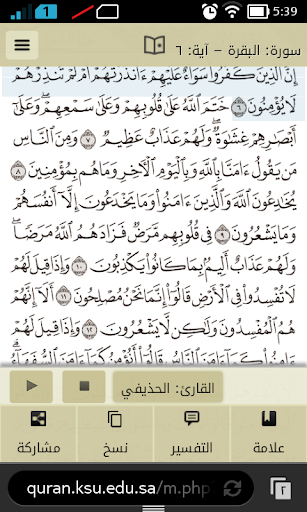 1 5:39
سورة: البقرة - آية: ٦
إِنَّ الَّذِينَ كَفَرُوا سَوَاءٌ عَلَيْهِمْ ءَأَنذَرْتَهُمْ أَمْ لَمْ تُنذِرْهُمْ
لَا يُؤْمِنُونَ ٦ خَتَمَ اللَّهُ عَلَىٰ قُلُوبِهِمْ وَعَلَىٰ سَمْعِهِمْ ۖ وَعَلَىٰ
أَبْصَارِهِمْ غِشَاوَةٌ ۖ وَلَهُمْ عَذَابٌ عَظِيمٌ ٧ وَمِنَ النَّاسِ
مَن يَقُولُ ءَامَنَّا بِاللَّهِ وَبِالْيَوْمِ الْآخِرِ وَمَا هُم بِمُؤْمِنِينَ ٨
يُخَادِعُونَ اللَّهَ وَالَّذِينَ ءَامَنُوا وَمَا يَخْدَعُونَ إِلَّا أَنفُسَهُمْ
وَمَا يَشْعُرُونَ ٩ فِي قُلُوبِهِم مَّرَضٌ فَزَادَهُمُ اللَّهُ مَرَضًا ۖ
وَلَهُمْ عَذَابٌ أَلِيمٌ بِمَا كَانُوا يَكْذِبُونَ ١٠ وَإِذَا قِيلَ لَهُمْ
لَا تُفْسِدُوا فِي الْأَرْضِ قَالُوا إِنَّمَا نَحْنُ مُصْلِحُونَ ١١ أَلَا إِنَّهُمْ
هُمُ الْمُفْسِدُونَ وَلَٰكِن لَّا يَشْعُرُونَ ١٢ وَإِذَا قِيلَ لَهُمْ
ءَامِنُوا كَمَا ءَامَنَ النَّاسُ قَالُوا أَنُؤْمِنُ كَمَا ءَامَنَ السُّفَهَاءُ
القارئ: الحذيفي
علامة التفسير نسخ مشاركة
quran.ksu.edu.sa/m.php ٢